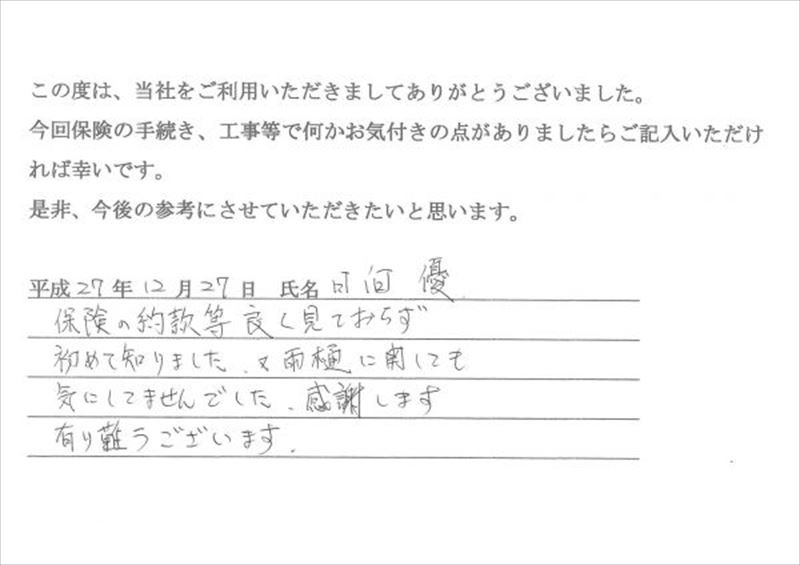 この度は、当社をご利用いただきましてありがとうございました。
今回保険の手続き、工事等で何かお気付きの点がありましたらご記入いただけ
れば幸いです。
是非、今後の参考にさせていただきたいと思います。
平成27年12月27日 氏名 優
保険の約款等良く見ておらず
初めて知りました、又雨樋に関しても
気にしてませんでした、感謝します
有り難うございます.